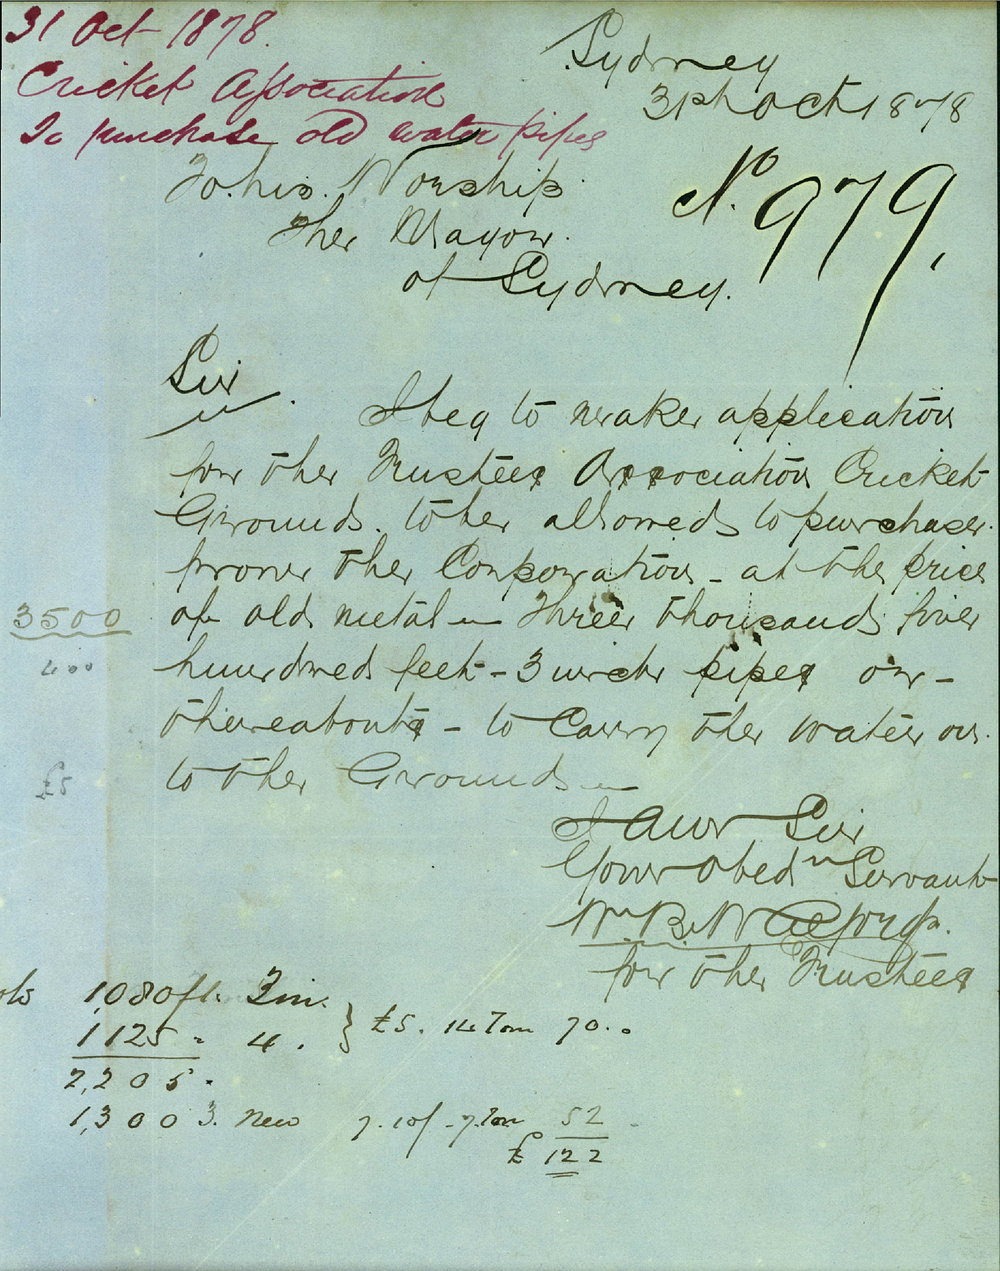 31 Oct 1878.
Cricket Association
To purchase old water pipes
Sydney
31st Oct 1878
No. 979.
To his Worship
The Mayor
of Sydney.
Sir
I beg to make application
for the Trustees Association Cricket
Grounds. to be allowed to purchase
from the Corporation - at the price
of old metal - Three thousand five
hundred feet - 3 inch pipes or -
thereabouts - to Carry the water on
to the Grounds -
3500
400
£5
I am Sir
Your Obed Servant
Wm B. Walford
for the Trustees
1,080 ft. 3 in.
1125 " 4 .
2,205 .
£5. 14 Ton 70..
1,300 3. New 7.10/- 7. Ton 52
£ 122